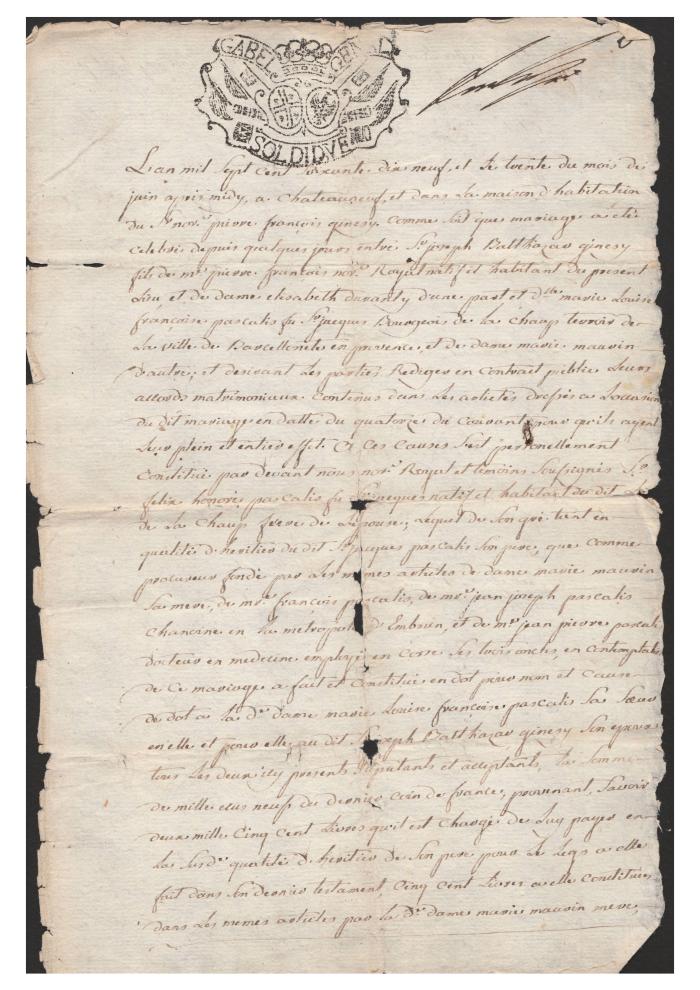 GABEL GENERAL
SOL DI DVE
L'an mil sept cent soixante dix neuf, et le trente du mois de
juin après midy, a Chateauneuf, et dans la maison d'habitation
du Sr nore pierre françois ginesy. Comme soit que mariage a eté
celebré depuis quelques jours entre Sr joseph Balthazar ginesy
fils de me pierre françois nore Royal natif et habitant du present
Lieu et de dame elisabeth durandy d'une part et dlle marie Louise
françoise pascalis fu Sr jacques Bourgeois de la Chaup terroir de
La ville de Barcellonete en provence, et de dame marie maurin
d'autre; et desirant Les parties Rediger en Contrait public Leurs
accords matrimoniaux Contenus dans Les articles dressés a L'occasion
du dit mariage en datte du quatorze du Courant pour qu'ils ayent
Leur plein et entier effet. A Ces Causes Soit personellement
Constitué par devant nous nore Royal et temoins Soussignés Sr
felix honoré pascalis fu Sr jacques natif et habitant du dit Lieu
de La Chaup frere de L'epouse; Lequel de Son gré tant en
qualité d'heritier du dit Sr jacques pascalis Son pere, que comme
procureur fondé par Les memes articles de dame marie maurin
Sa mere, de mre françois pascalis, de mre jean joseph pascalis
Chanoine en La metropole d'Embrun, et de Mr jean pierre pascalis
docteur en medecine employé en Corse Ses trois oncles, en contemplation
de Ce mariage a fait et Constitué en dot pour nom et Cause
de dot a La de dame marie Louise françoise pascalis Sa Sœur
en elle et pour elle au dit Sr joseph Balthazar ginesy Son epoux
tous Les deux icy presents Stipulants et acceptants, La Somme
de mille ecus neufs du dernier Coin de france, provenant, Savoir
deux mille Cinq cent Livres qu'il est Chargé de Luy payer en
La Susde qualité d'heritier de Son pere pour Le Legs a elle
fait dans Son dernier testament, Cinq cent Livres a elle Constituées
dans Les memes articles par La de dame marie maurin mere,